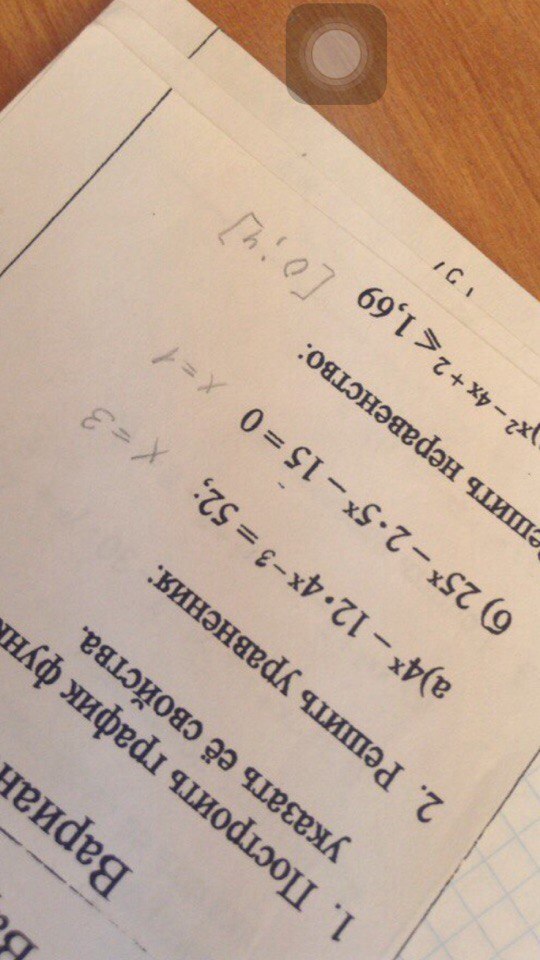 Вариан
1. Построить график функ
указать её свойства.
2. Решить уравнения:
а)4ˣ − 12·4ˣ⁻³ = 52; x = 3
б) 25ˣ − 2·5ˣ − 15 = 0 x = 1
ешить неравенство:
)ˣ²⁻⁴ˣ⁺² ⩽ 1,69 [0;4]